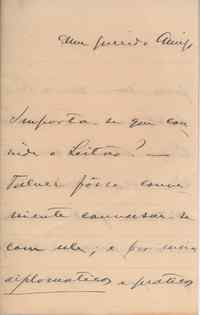 Meu querido Amigo
Importa-se que con-
vide o Leitão? —
Talvez fôsse conve-
niente conversar-se
com elle; e por meios
diplomaticos e praticos